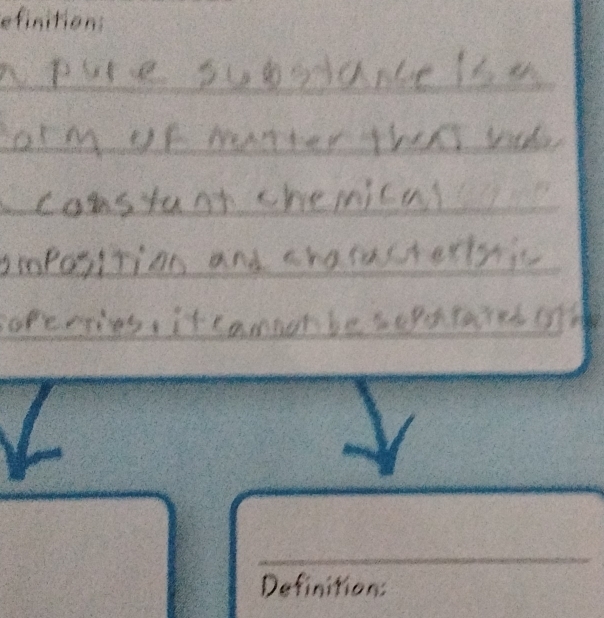 efinition:
pure substance is a
orm of matter that
constant chemical
omposition and characteristic
operties, it cannot be separated
Definition: